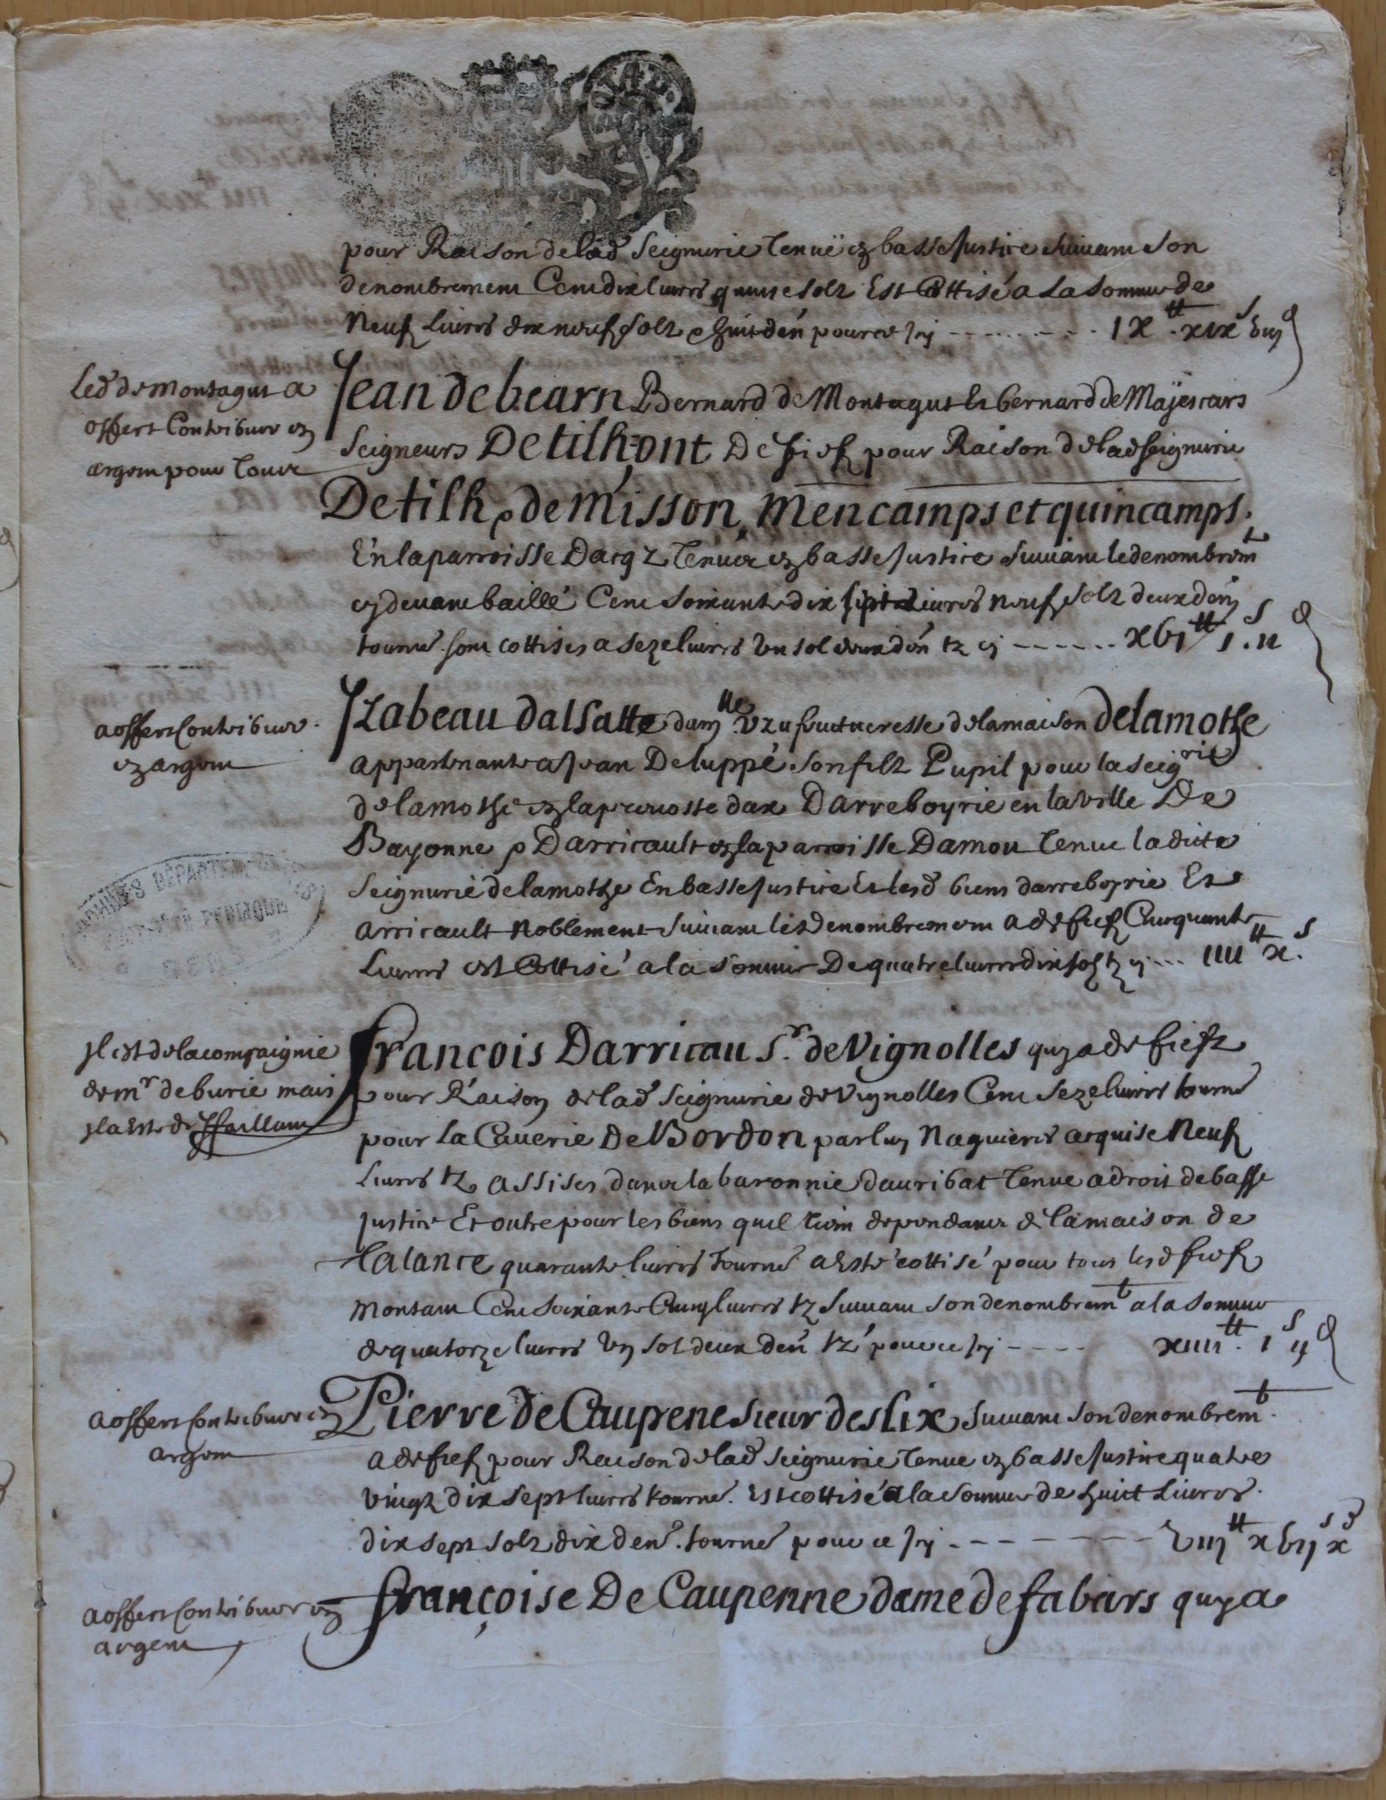 pour Raison de lad Seignurie Tenuë en basse Justice suivant Son
denombrement Cent dix livres quinze solz Est Cottisé a La Somme de
Neuf Livres dix neuf solz e huit den pour ce cy - - - - - - - - IX ₶ XIX s VIII d
Led de Montagut a
offert Contribuer en
argent pour Tous
Jean de bearn Bernard de Montagut Et bernard de Majescars
Seigneurs De tilh ont De fief pour Raison de lad seignurie
De tilh, e de Misson, Mencamps et quincamps.
En la parroisse Dacqz Tenue en basse Justice suivant le denombremt
cy devant baillé Cent Soixante dix sept Livres neuf solz deux den
tourne. sont cottises a seze livres un sol deux den tz cy - - - - - - XVI ₶ I s. II d
a offert Contribuer
en argent
Izabeau dalsatte damlle uzufructueresse de la maison de lamothe
appartenante a Jean De luppé son filz Pupil pour la seigrie
de lamothe en la prevoste dax Darreboyrie en la ville De
Bayonne e Darricault en la parroisse Damou Tenue la dicte
seignurie de lamothe En basse Justice Et lesd biens darreboyrie Et
arricault Noblement suivant les denombrement a de fief Cinquante
Livres est Cottisé a la somme De quatre livres dix solz tz cy - - - IIII ₶ X s
ARCHIVES DÉPARTEMENTALES
Il est de la compaignie
de mr de burie mais
il a Este deffaillant
francois Darricau Sr. de Vignolles quy a de fiefz
pour Raison de lad Seignurie de Vignolles Cent Seze livres tourne
pour La Caverie De Bordon par luy Naguieres acquise Neuf
Livres tz assises dans la baronnie dauribat Tenue a droit de basse
Justice Et outre pour les biens quil tient dependans de la maison de
talance quarante livres tourne a Esté cottisé pour tous lesd fief
montant Cent soixante Cinq livres tz suivant son denombremt a la somme
de quatorze livres un sol deux den tz pour ce cy - - - - XIIII ₶. I s II d
a offert Contribuer en
argent
Pierre de Caupene sieur des lix suivant son denombremt.
a de fief pour Raison de lad seignurie Tenue en basse Justice quatre
vingz dix sept livres tourne. Est cottisé a la somme de huict Livres.
dix sept solz dix den. tourne pour ce cy - - - - - - - - VIII ₶ XVII s X d
a offert Contribuer en
argent
françoise De Caupenne dame de fabars quy a